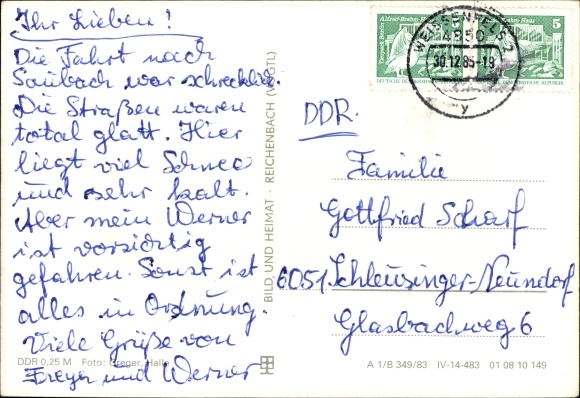 Ihr Lieben!
Die Fahrt nach
Saubach war schrecklich.
Die Straßen waren
total glatt. Hier
liegt viel Schnee
und sehr kalt.
Aber mein Werner
ist vorsichtig
gefahren. Sonst ist
alles in Ordnung.
Viele Grüße von
und Werner
DDR 0,25 M Foto: Greger, Halle
BILD UND HEIMAT · REICHENBACH (VOGTL)
Tierpark Berlin Alfred-Brehm-Haus
Brehm-Haus 5
WEISSENFELS 2
4850
30.12.85-18
y
DDR.
Familie
Gottfried Scharf
6051 Schleusinger-Neundorf
Glasbachweg 6
A 1/B 349/83 IV-14-483 01 08 10 149